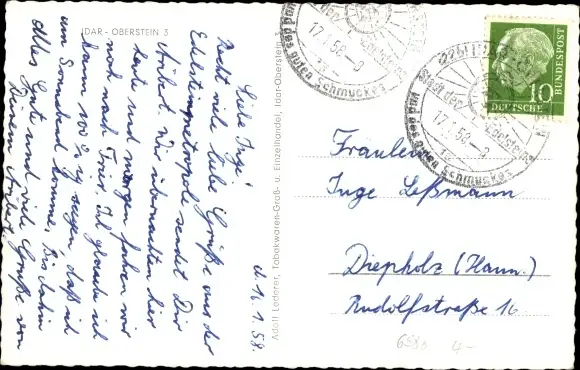 IDAR - OBERSTEIN 3
d. 16.1.58.
Liebe Inge!
Recht viele liebe Grüße aus der
Edelsteinmetropole sendet Dir
Norbert. Wir übernachten hier
heute und morgen fahren wir
noch nach Trier. Ich glaube ich
kann 100%ig sagen, daß ich
am Sonnabend komme. Bis dahin
alles Gute und viele Grüße von
Deinem Norbert.
Adolf Lederer, Tabakwaren-Groß- u. Einzelhandel, Idar-Oberstein 3
17.1.58.-9
und des guten Schmuckes
Stadt der Edelsteine
17.1.58.-9
und des guten Schmuckes
10
DEUTSCHE
BUNDESPOST
Fräulein
Inge Leßmann
Diepholz (Hann.)
Rudolfstraße 16